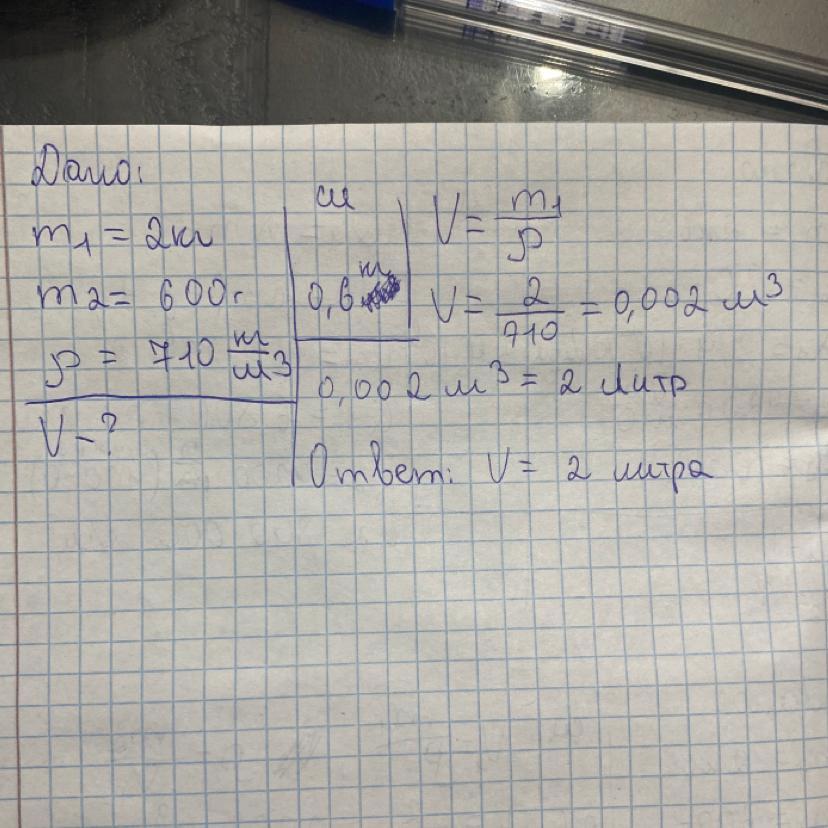 Дано:
m₁ = 2кг
m2 = 600г
ρ = 710 кг/м³
V - ?
си
0,6 кг
V = m₁/ρ
V = 2/710 = 0,002 м³
0,002 м³ = 2 литр
Ответ: V = 2 литра